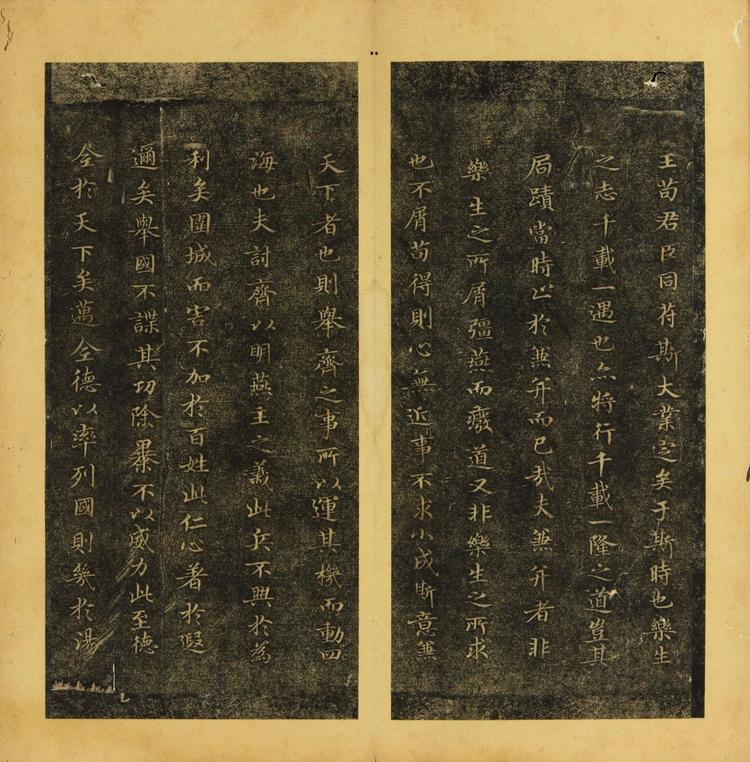 王苟君臣同符斯大業定矣于斯時也樂生
之志千載一遇也亦將行千載一隆之道豈其
局蹟當時止於兼并而已哉夫兼并者非
樂生之所屑彊燕而廢道又非樂生之所求
也不屑苟得則心無近事不求小成斯意兼
天下者也則舉齊之事所以運其機而動四
海也夫討齊以明燕主之義此兵不興於為
利矣圍城而害不加於百姓此仁心著於遐
邇矣舉國不謀其功除暴不以威力此至德
全於天下矣邁全德以率列國則幾於湯